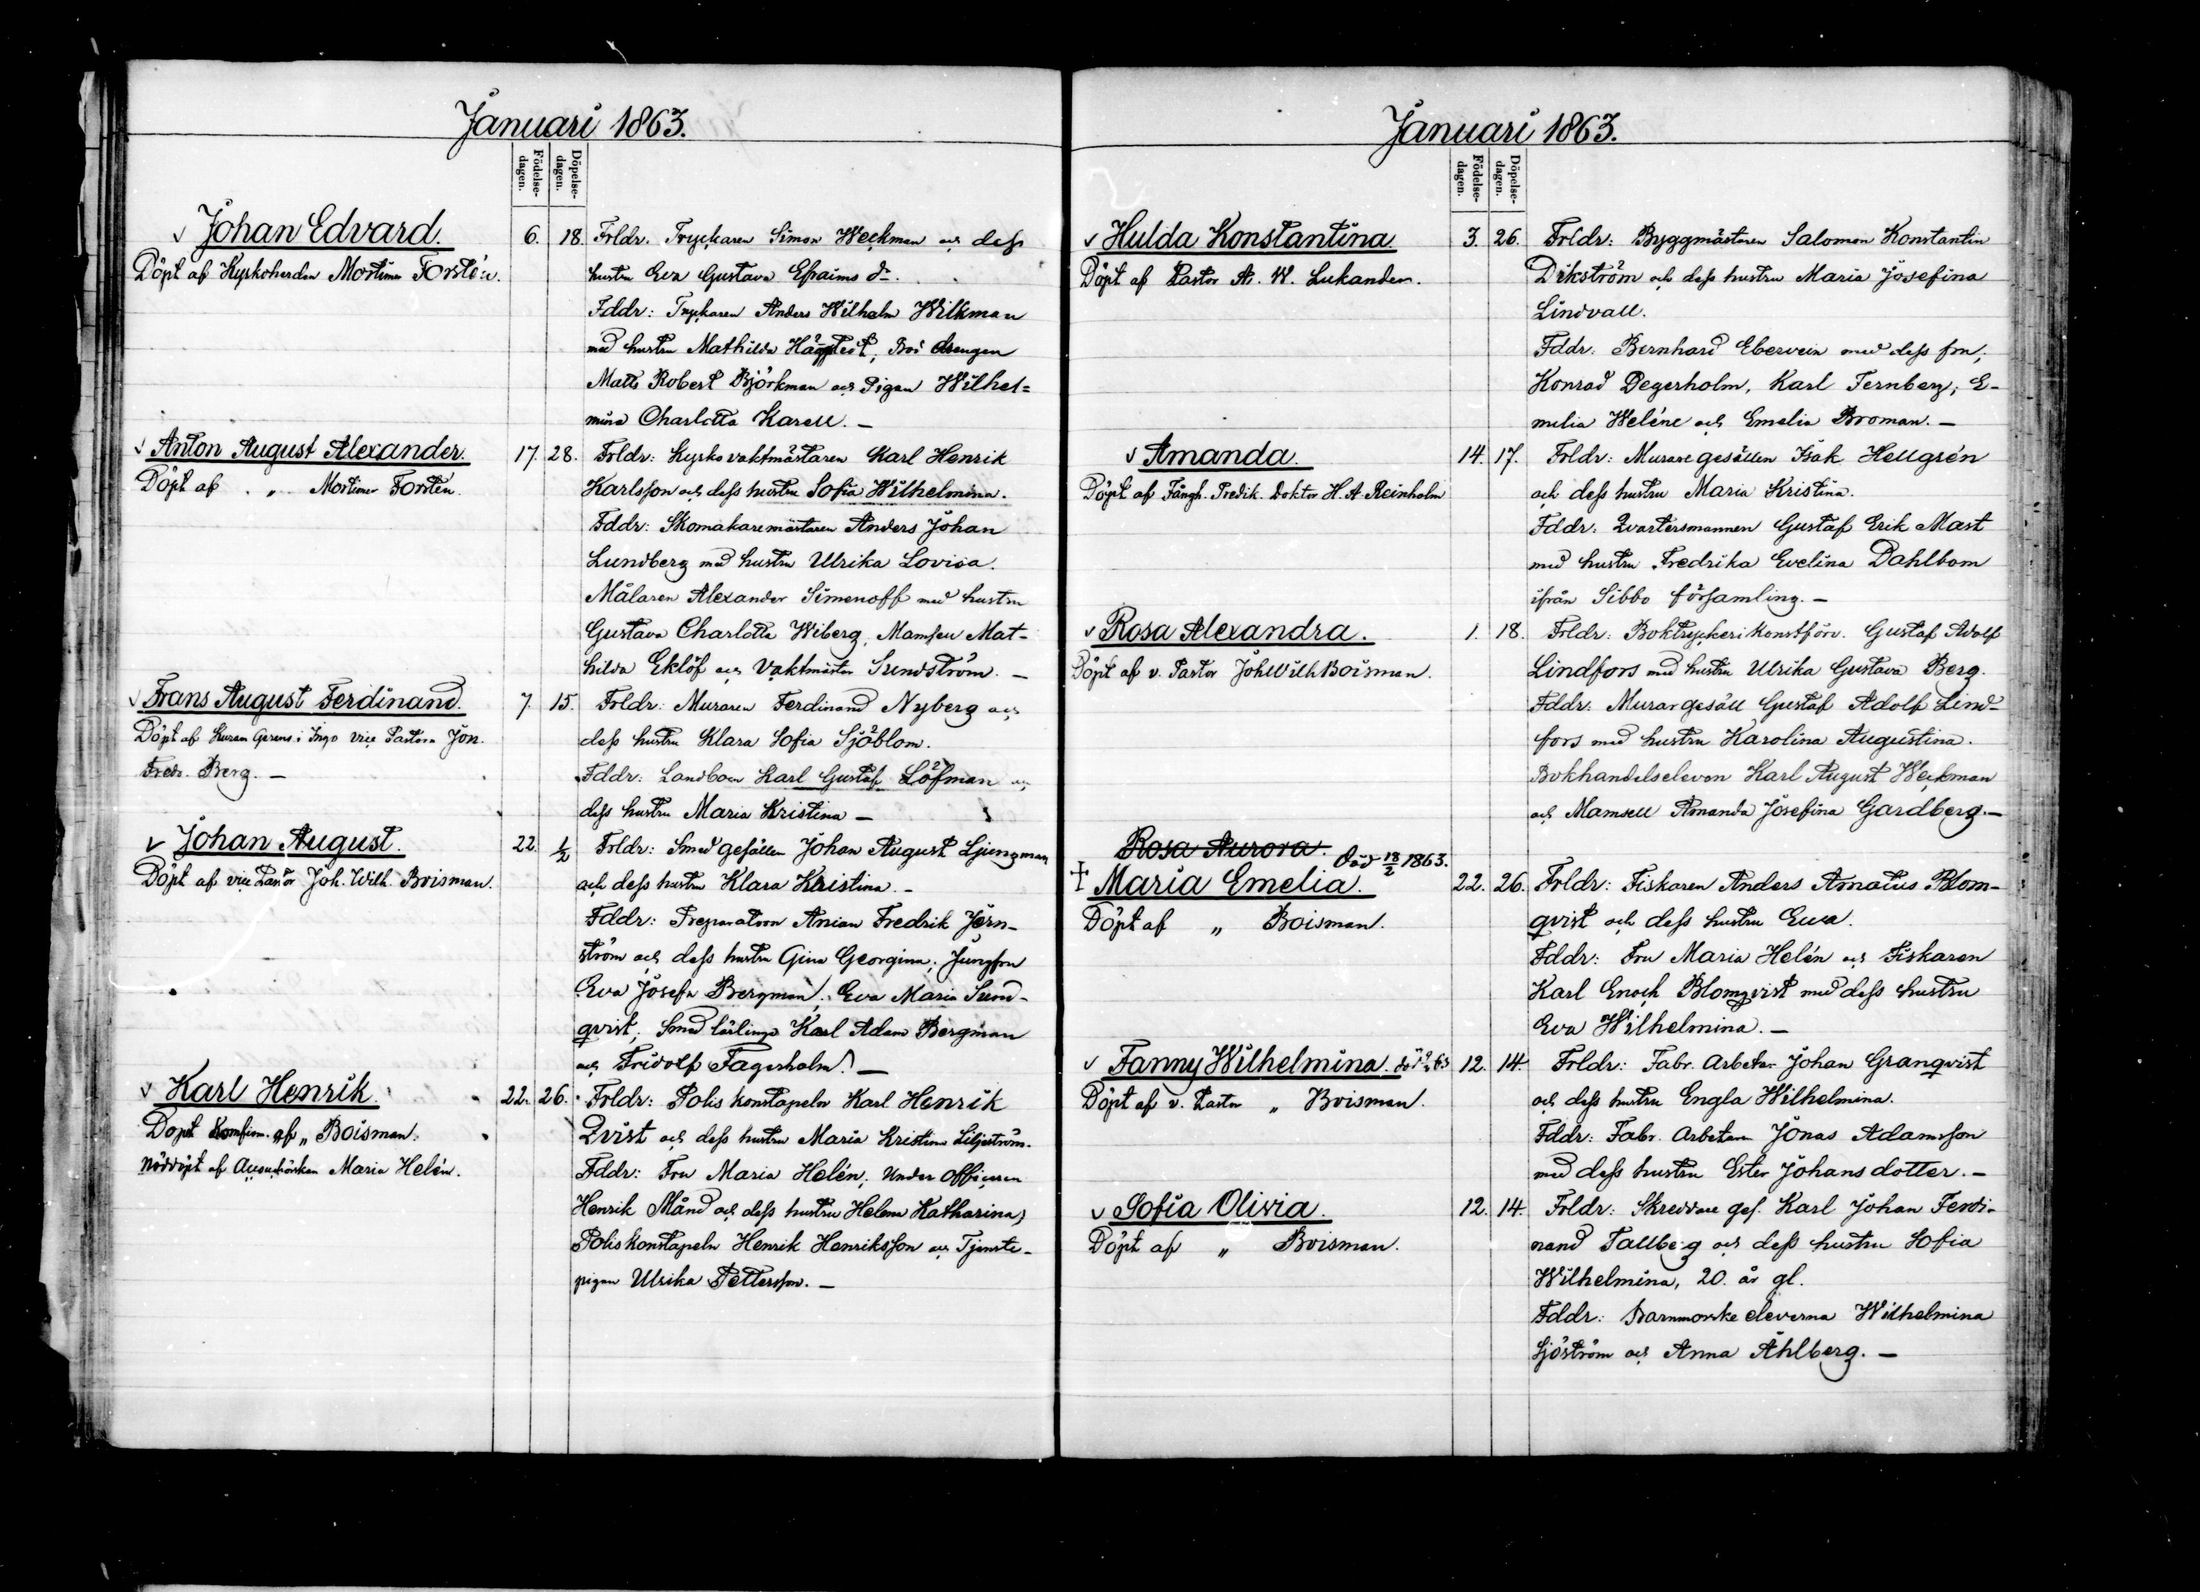 Januari 1863.
Födelse-
dagen.
Döpelse-
dagen.
Johan Edvard.
Döpt af Kyrkoherden Mortimer Forstén.
6. 18.
Frldr. Tryckaren Simon Weckman och dess
hustru Eva Gustava Efraims dr.
Fddr: Tryckaren Anders Wilhelm Wilkman
med hustru Mathilda Häggqvist, drengen
Matts Robert Björkman och Pigan Wilhel=
mina Charlotta Karell. —
Anton August Alexander.
Döpt af " Mortimer Forstén.
17. 28.
Frldr: Kyrkovaktmästaren Karl Henrik
Karlsson och dess hustru Sofia Wilhelmina.
Fddr: Skomakaremästaren Anders Johan
Lundberg med hustru Ulrika Lovisa.
Målaren Alexander Simenoff med hustru
Gustava Charlotta Wiberg, Mamsell Mat-
hilda Eklöf och Vaktmästar Sundström. —
Frans August Ferdinand.
Döpt af Kuram Gerens i Ingo vice Pastorn Jon.
Fredr. Berg. —
7. 15.
Frldr: Muraren Ferdinand Nyberg och
dess hustru Klara Sofia Sjöblom.
Fddr: Landboen Karl Gustaf Löfman och
dess hustru Maria Kristina —
Johan August.
Döpt af vice Pastor Joh. Wilh. Boisman.
22. 1/2
Frldr: Smedgesällen Johan August Ljungman
och dess hustru Klara Kristina. -
Fddr: Preparatorn Anian Fredrik Jern-
ström och dess hustru Gina Georgina; Jungfru
Eva Josefa Bergman, Eva Maria Sund-
qvist, Smed lärlinge Karl Adam Bergman
och Fridolf Fagerholm. —
Karl Henrik.
Döpt Komfirm. af " Boisman.
Nöddöpt af Maria Helén.
22. 26.
Frldr: Polis konstapeln Karl Henrik
Qvist och dess hustru Maria Kristina Liljeström.
Fddr: Fru Maria Helén, Under Officeren
Henrik Månd och dess hustru Helena Katharina,
Poliskonstapeln Henrik Henriksson och Tjenste-
pigan Ulrika Pettersson. —
Januari 1863.
Födelse-
dagen.
Döpelse-
dagen.
Hulda Konstantina
Döpt af Pastor A. W. Lukander.
3. 26.
Frldr: Byggmästaren Salomon Konstantin
Dikström och dess hustru Maria Josefina
Lindvall.
Fddr: Bernhard Ebervein med dess fru,
Konrad Degerholm, Karl Fernberg, E-
melia Weléne och Emelia Broman. —
Amanda.
Döpt af Fångh. Predik. Doktor H. A. Reinholm
14. 17.
Frldr: Muraregesällen Isak Hellgrén
och dess hustru Maria Kristina.
Fddr: Qvartersmannen Gustaf Erik Mast
med hustru Fredrika Evelina Dahlbom
ifrån Sibbo församling. —
Rosa Alexandra.
Döpt af v. Pastor Joh Wilh Boisman.
1. 18.
Frldr: Boktryckerikonstförv. Gustaf Adolf
Lindfors med hustru Ulrika Gustava Berg.
Fddr. Murargesäll Gustaf Adolf Lind-
fors med hustru Karolina Augustina.
Bokhandelseleven Karl August Weckman
och Mamsell Amanda Josefina Gardberg. —
Rosa Aurora.
Död 18/2 1863.
Maria Emelia.
Döpt af " Boisman.
22. 26.
Frldr: Fiskaren Anders Amatus Blom-
qvist och dess hustru Eva.
Fddr: Fru Maria Helén och Fiskaren
Karl Enock Blomqvist med dess hustru
Eva Wilhelmina. —
Fanny Wilhelmina.
Döpt af v. Pastor " Boisman.
12. 14.
Frldr: Fabr. Arbetar Johan Granqvist
och dess hustru Engla Wilhelmina.
Fddr: Fabr. Arbetaren Jonas Adamsson
med dess hustru Ester Johansdotter. —
Sofia Olivia.
Döpt af " Boisman.
12. 14.
Frldr: Skreddare ges. Karl Johan Ferdi-
nand Tallberg och dess hustru Sofia
Wilhelmina, 20. år gl.
Fddr: Barnmorske eleverna Wilhelmina
Sjöström och Anna Åhlberg. —